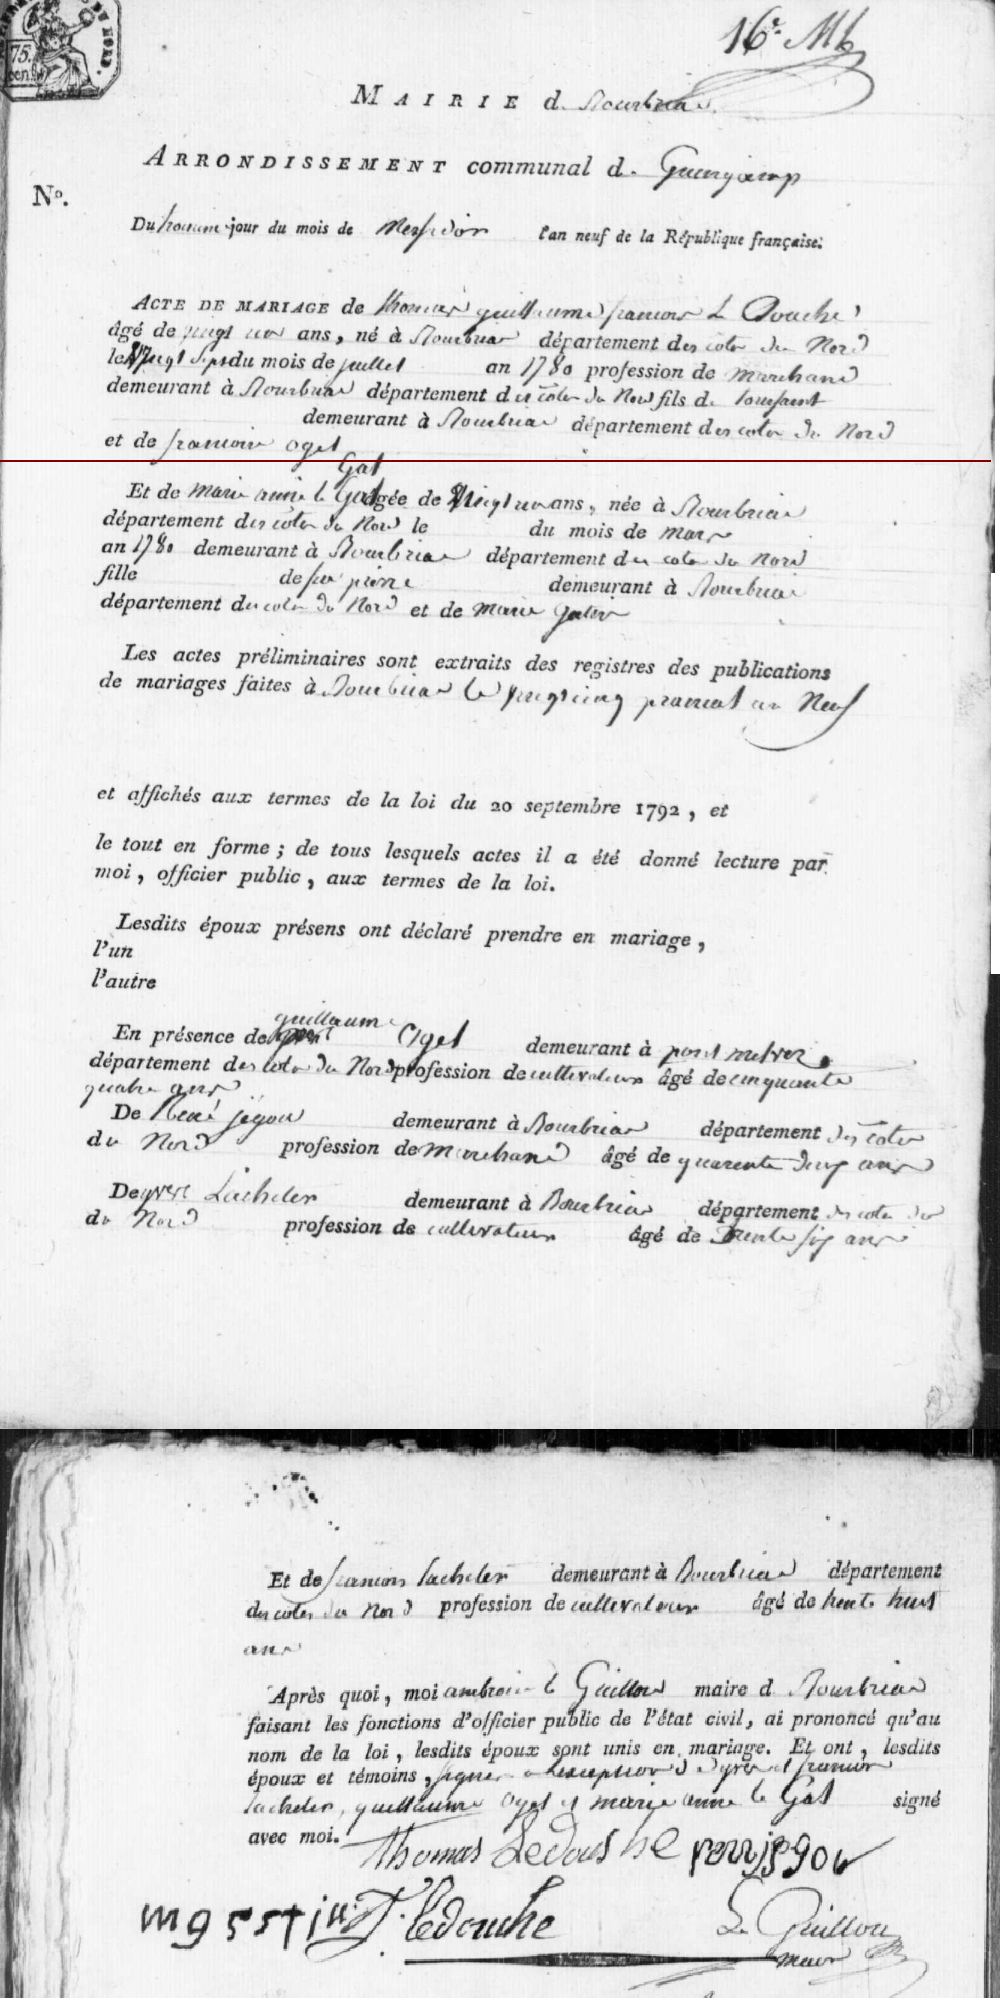 75.
cen.
DU NORD.
16e.
MAIRIE d. Bourbriac
ARRONDISSEMENT communal d. Guingamp
No.
Du jour du mois de Messidor l'an neuf de la République française.
ACTE DE MARIAGE de thomas guillaume francois Le Douche
âgé de vingt un ans, né à Bourbriac département des cotes du Nord
le vingt sept du mois de juillet an 1780 profession de marchand
demeurant à Bourbriac département des cotes du Nord fils de toussaint
demeurant à Bourbriac département des cotes du Nord
et de francoise oget
Gat
Et de marie anne le Gat âgée de vingt un ans, née à Bourbriac
département des cotes du Nord le du mois de mars
an 1780 demeurant à Bourbriac département des cotes du Nord
fille de feu pierre demeurant à Bourbriac
département des cotes du Nord et de marie
Les actes préliminaires sont extraits des registres des publications
de mariages faites à Bourbriac le vingt cinq prairial an Neuf
et affichés aux termes de la loi du 20 septembre 1792, et
le tout en forme; de tous lesquels actes il a été donné lecture par
moi, officier public, aux termes de la loi.
Lesdits époux présens ont déclaré prendre en mariage,
l'un
l'autre
guillaume
En présence de Oget demeurant à pont melvez
département des cotes du Nord profession de cultivateur âgé de cinquante
quatre ans
De René jegou demeurant à Bourbriac département des cotes
du Nord profession de marchand âgé de quarente deux ans
De yves Lacheler demeurant à Bourbriac département des cotes
du Nord profession de cultivateur âgé de trente six ans
Et de francois lacheler demeurant à Bourbriac département
des cotes du Nord profession de cultivateur âgé de trente huit
ans
Après quoi, moi ambroise le Guillou maire d Bourbriac
faisant les fonctions d'officier public de l'état civil, ai prononcé qu'au
nom de la loi, lesdits époux sont unis en mariage. Et ont, lesdits
époux et témoins, signer a lexception d yves et francois
lacheler, guillaume oget et marie anne le Gat signé
avec moi.
Thomas Ledouche
T. ledouche Le Guillou
maire